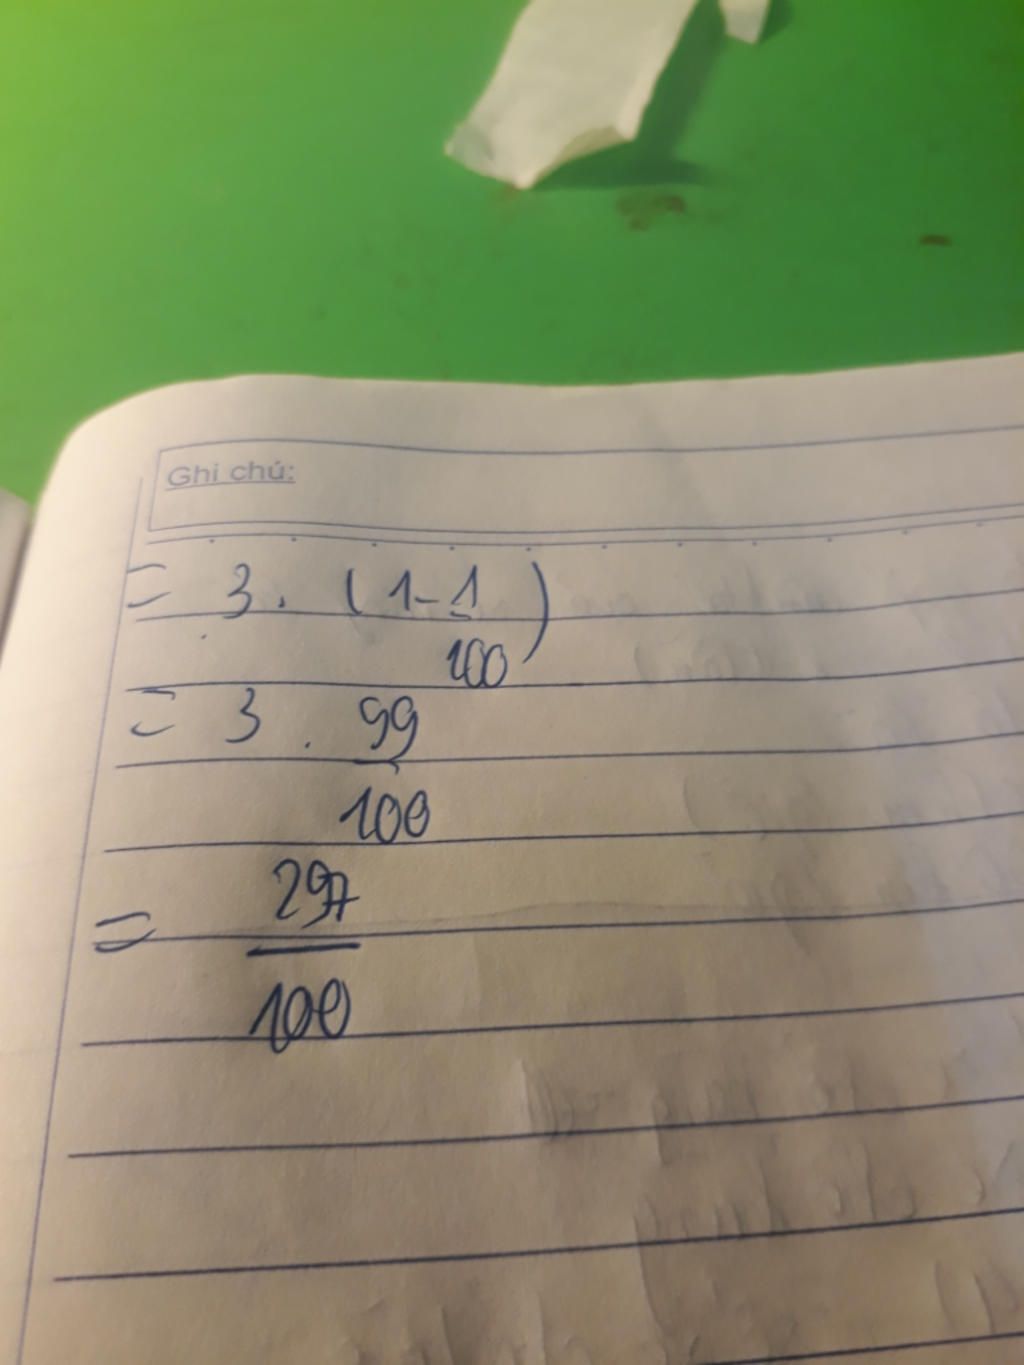 Ghi chú:
= 3 . (1 - 1/100)
= 3 . 99/100
= 297/100